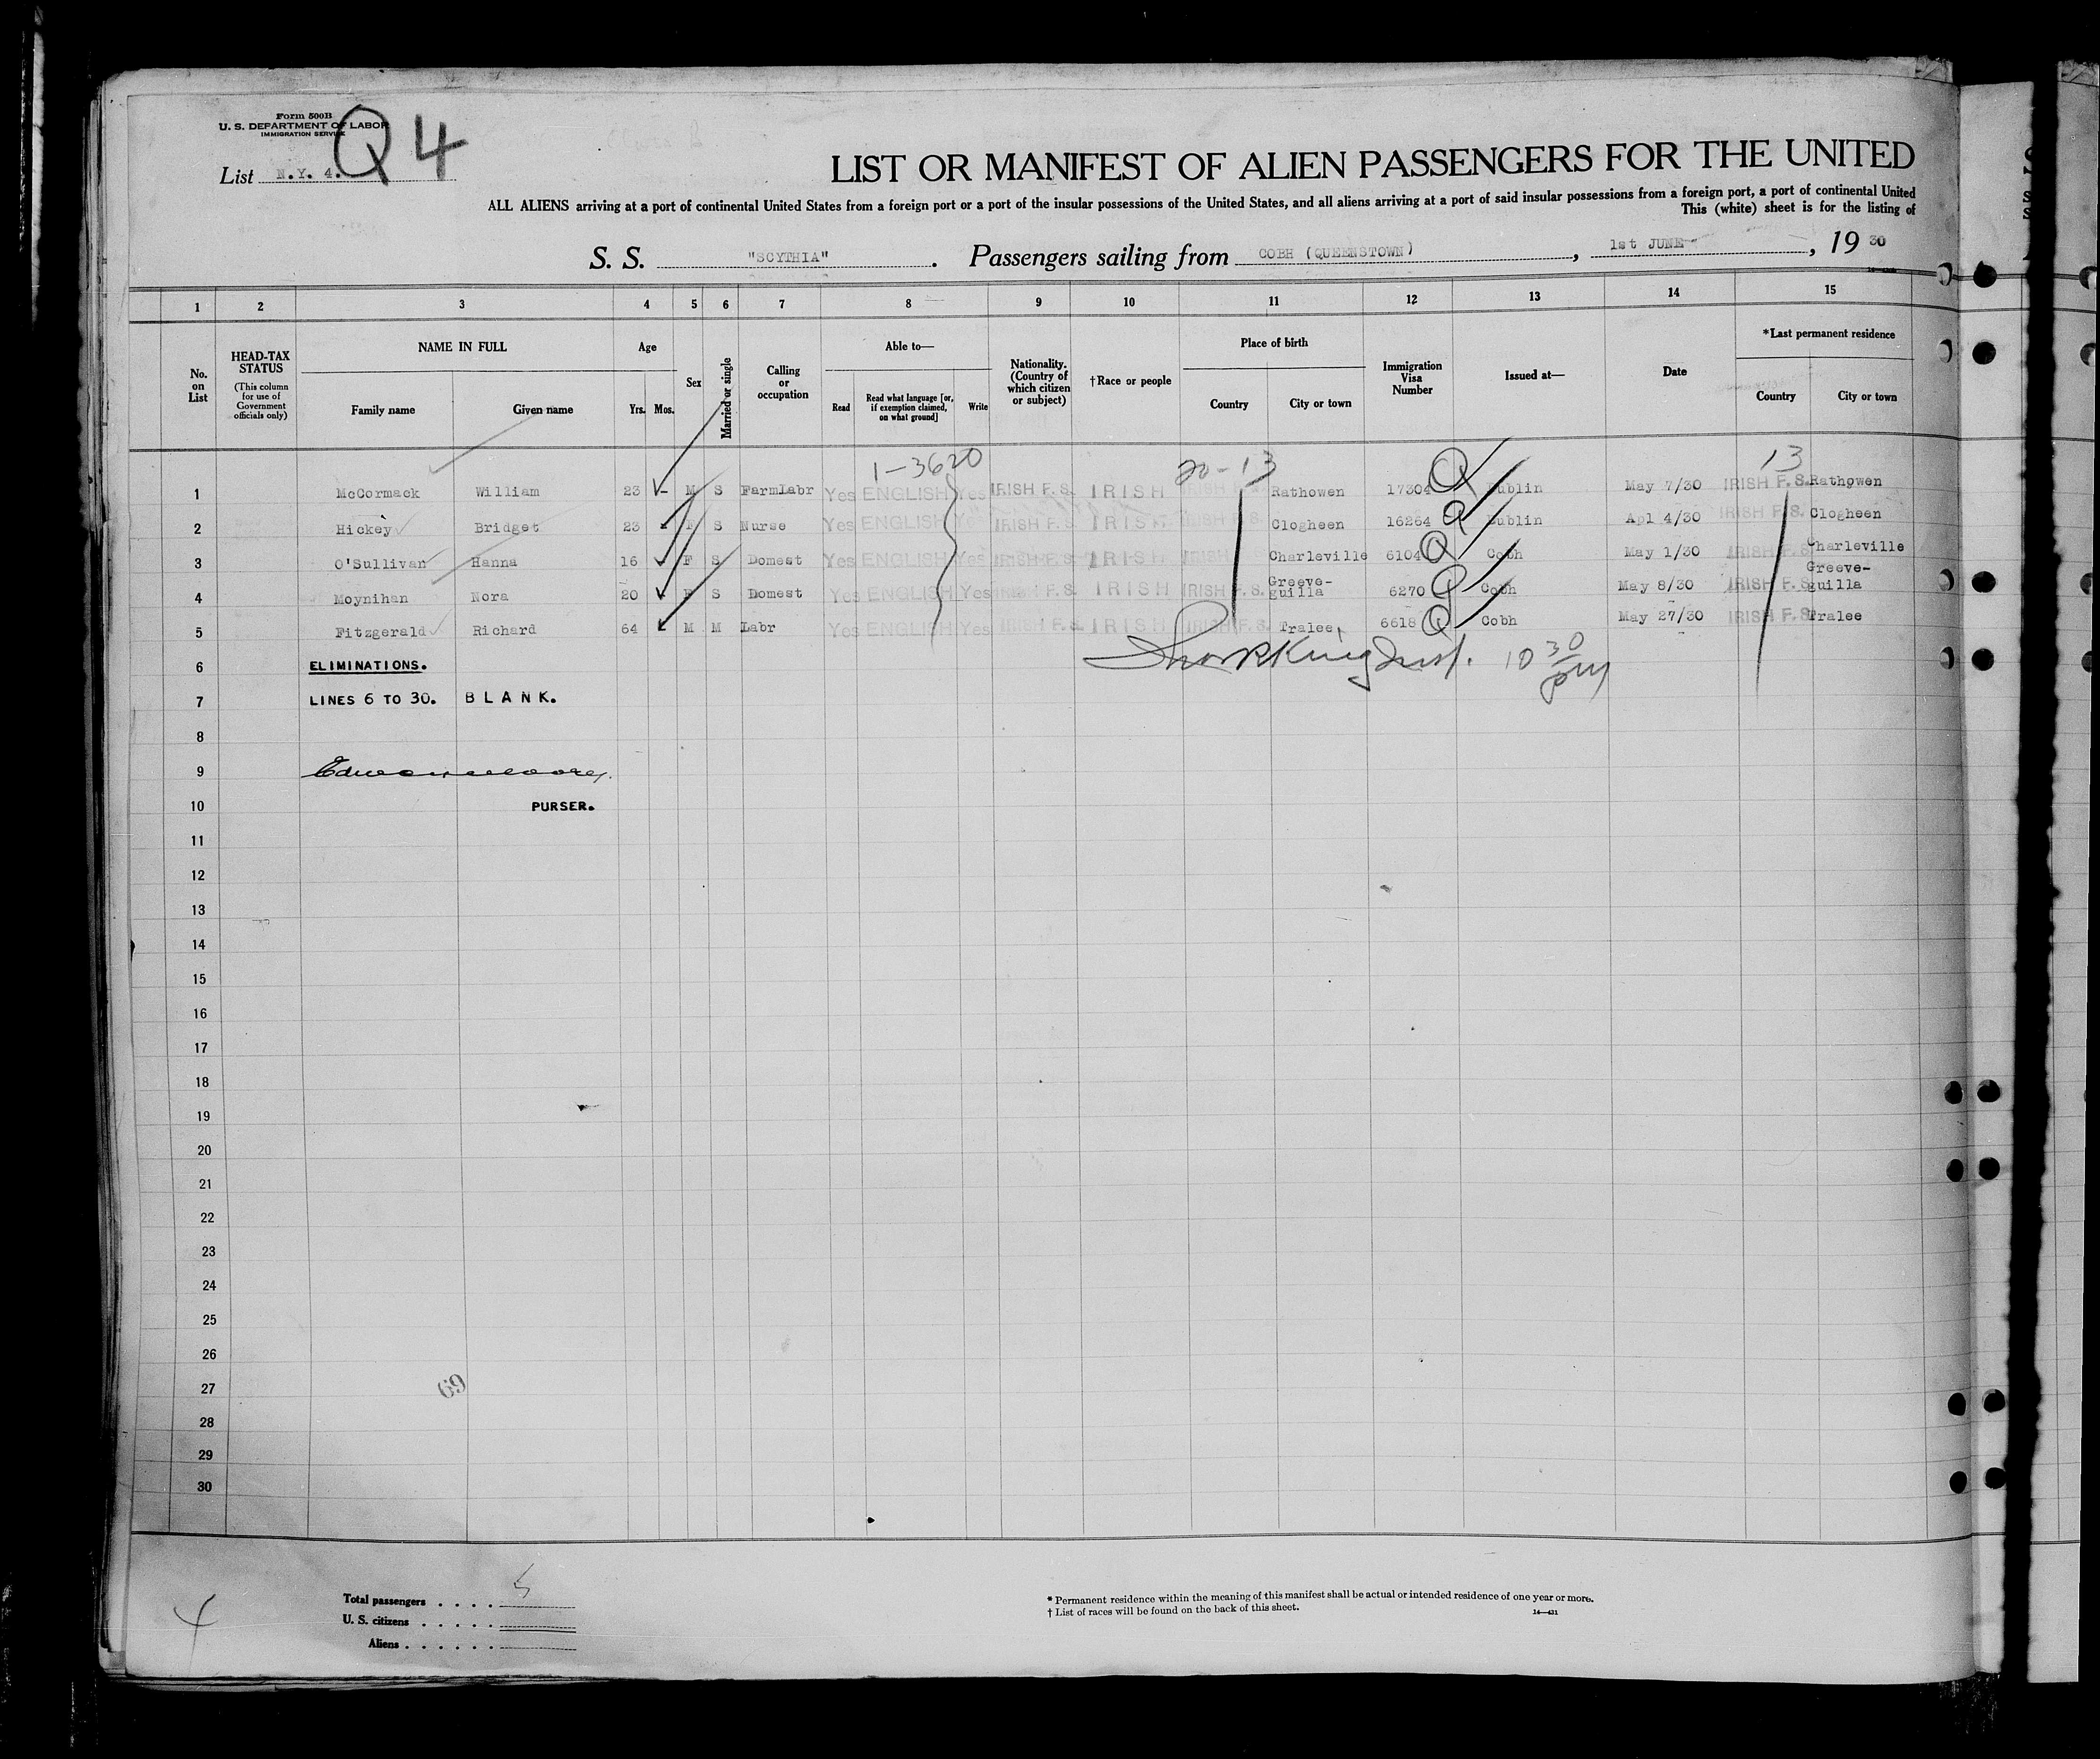 Form 500B
U. S. DEPARTMENT OF LABOR
IMMIGRATION SERVICE
Q 4
List N.Y. 4.
LIST OR MANIFEST OF ALIEN PASSENGERS FOR THE UNITED
ALL ALIENS arriving at a port of continental United States from a foreign port or a port of the insular possessions of the United States, and all aliens arriving at a port of said insular possessions from a foreign port, a port of continental United
This (white) sheet is for the listing of
S. S. "SCYTHIA". Passengers sailing from COBH (QUEENSTOWN), 1st JUNE, 19 30
1 2 3 4 5 6 7 8 9 10 11 12 13 14 15
No. on List
HEAD-TAX STATUS
(This column for use of Government officials only)
NAME IN FULL
Family name Given name
Age
Yrs. Mos.
Sex
Married or single
Calling or occupation
Able to—
Read Read what language [or, if exemption claimed, on what ground] Write
Nationality. (Country of which citizen or subject)
†Race or people
Place of birth
Country City or town
Immigration Visa Number
Issued at—
Date
*Last permanent residence
Country City or town
1-3620 20-13 13
1 McCormack William 23 - M S Farmlabr Yes ENGLISH Yes IRISH F.S. IRISH IRISH F.S. Rathowen 17304 Q Dublin May 7/30 IRISH F.S. Rathowen
2 Hickey Bridget 23 - F S Nurse Yes ENGLISH Yes IRISH F.S. IRISH IRISH F.S. Clogheen 16264 Q Dublin Apl 4/30 IRISH F.S. Clogheen
3 O'Sullivan Hanna 16 - F S Domest Yes ENGLISH Yes IRISH F.S. IRISH IRISH Charleville 6104 Q Cobh May 1/30 IRISH F.S. Charleville
4 Moynihan Nora 20 - F S Domest Yes ENGLISH Yes IRISH F.S. IRISH IRISH F.S. Greeve-guilla 6270 Q Cobh May 8/30 IRISH F.S. Greeve-guilla
5 Fitzgerald Richard 64 - M M Labr Yes ENGLISH Yes IRISH F.S. IRISH IRISH F.S. Tralee 6618 Q Cobh May 27/30 IRISH F.S. Tralee
6 ELIMINATIONS. King Insp. 10 30 pm
7 LINES 6 TO 30. BLANK.
8
9
10 PURSER.
11
12
13
14
15
16
17
18
19
20
21
22
23
24
25
26
27
69
28
29
30
4
Total passengers . . . . 5
U. S. citizens . . . . .
Aliens . . . . . .
* Permanent residence within the meaning of this manifest shall be actual or intended residence of one year or more.
† List of races will be found on the back of this sheet.
14—431